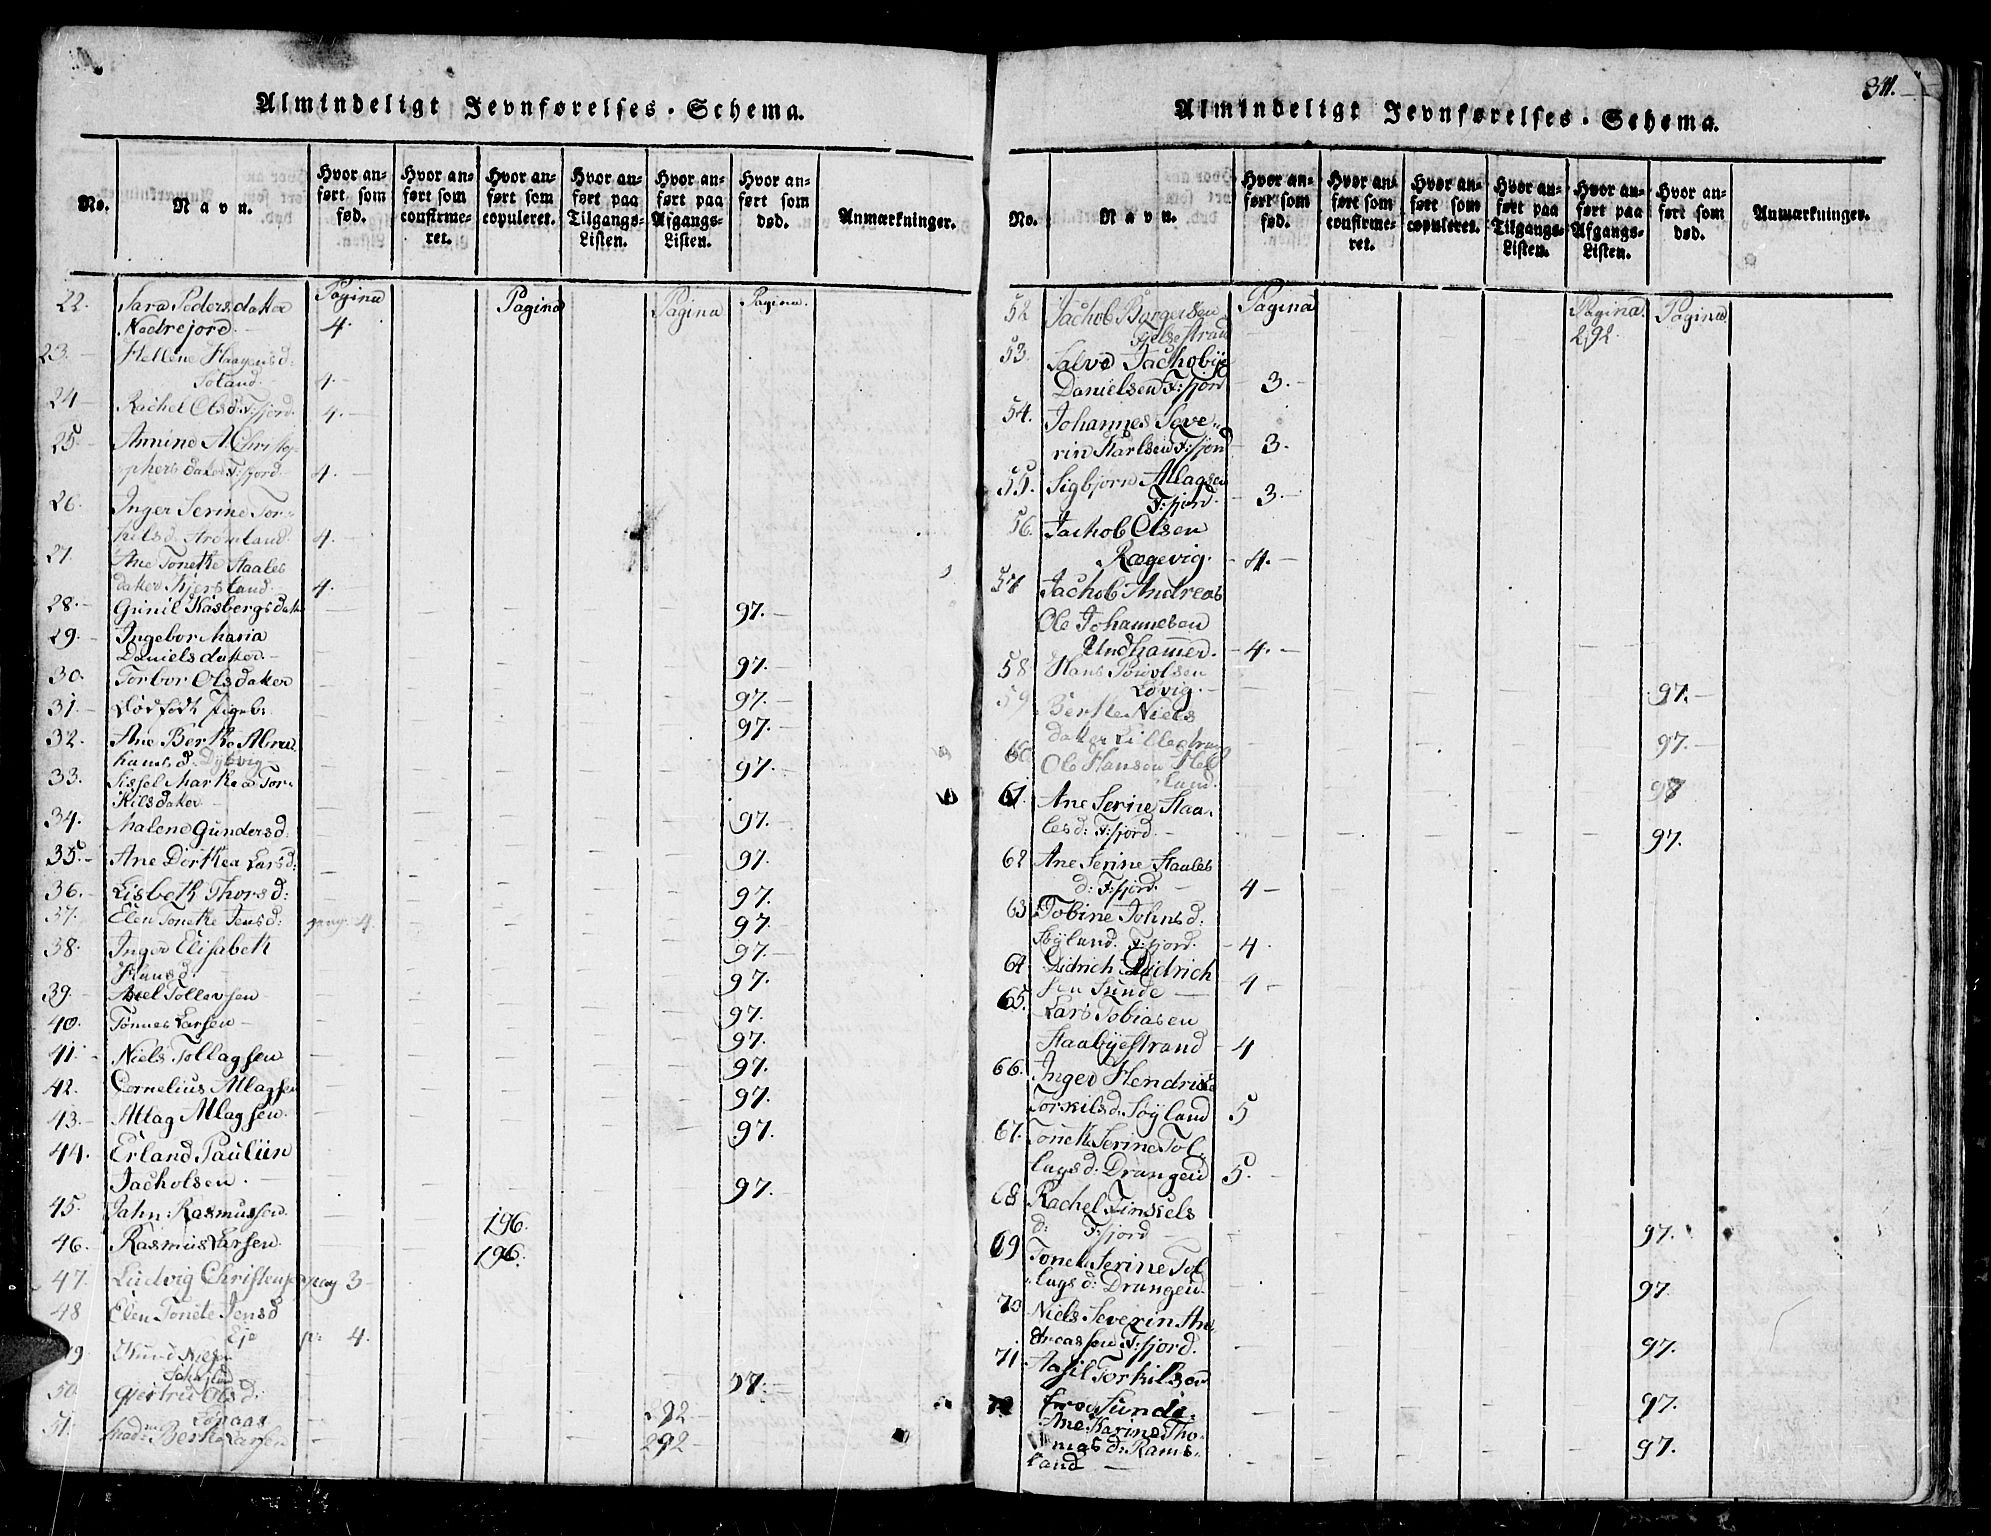 Almindeligt Jevnførelses-Schema.
No.
Navn.
Hvor anført som fød.
Hvor anført som confirmeret.
Hvor anført som copuleret.
Hvor anført paa Tilgangs-Listen.
Hvor anført paa Afgangs-Listen.
Hvor anført som død.
Anmærkninger.
Pagina Pagina Pagina Pagina
22. Sara Pedersdatter
Nedrejord 4.
23. Hellene Haagensd:
Toland 4.
24 Rachel Olsd: F:fjord 4.
25 Annine M. Christo-
phersdatter F:fjord 4.
26. Inger Serine Tor-
kilsd. Strømland 4.
27 Ane Tonette Staales
datter Kjersland 4.
28. Gunil Kasbergsdatt 97.
29. Ingebor Maria
Danielsdatter 97.
30. Torbor Olsdatter 97.
31. Dødfødt Pigeb: 97.
32. Ane Berthe Abra
hamsd. Dybvig 97.
33. Sissel Marthea Tor-
kilsdatter 97.
34. Malene Gundersd: 97.
35. Ane Dorthea Larsd: 97.
36. Lisbeth Thorsd: 97
37. Elen Tonette Jensd: pag: 4
38. Inger Elisabeth
Hansd. 97.
39. Axel Tollevsen 97.
40. Tønnes Larsen 97.
41. Niels Tollagsen 97.
42. Cornelius Allagsen 97.
43. Attag Allagsen 97.
44. Erland Pauliin
Jacholsen. 97.
45. Jahn Rasmussen 196.
46. Rasmus Larsen 196.
47. Ludvig Christensen pag 3
48 Elen Tonete Jensd
Eje p: 4.
49 Knud Nielsen
97.
50 Gjertrud Olsd:
292
51. Berthe Larsen 292
Almindeligt Jevnførelses-Schema.
341.
No.
Navn.
Hvor anført som fød.
Hvor anført som confirmeret.
Hvor anført som copuleret.
Hvor anført paa Tilgangs-Listen.
Hvor anført paa Afgangs-Listen.
Hvor anført som død.
Anmærkninger.
Pagina Pagina Pagina
52 Jachob Børgersen
Gjelsestrand 292
53. Salve Jachobÿe
Danielsen F:fjord 3.
54. Johannes Seve-
rin Karlsen F:fjord 3.
55. Sigbjørn Allagsen
F:fjord 3.
56. Jachob Olsen
Rægevig. 4.
57 Jachob Andreas
Ole Johannesen
Undhamer. 4.
58 Hans Povolsen
Løvig. 97.
59 Berthe Niels
datter Lillestrand 97.
60 Ole Hansen Hel
land. 97
61. Ane Serine Staa-
lesd: F:fjord. 97.
62 Ane Serine Staales
d: F:fjord. 4
63 Tobine Johnsd:
Søyland. F:fjord. 4.
64 Didrich Didrich
sen Sunde 4
65. Lars Tobiasen
Staabyestrand 4
66. Inger Hendrikke
Torkilsd. Søyland 5
67. Toneth Serine Tol-
lagsd: Drangeid 5.
68 Rachel Finskels
d: F:fjord 97.
69 Toneth Serine Tol
lagsd: Drangeid. 97
70 Niels Severin An-
dreassen F:fjord. 97.
71. Aasil Torkilsen
fra Sunde. 97.
72 Ane Karine Tho-
masd: Rams-
land 97.